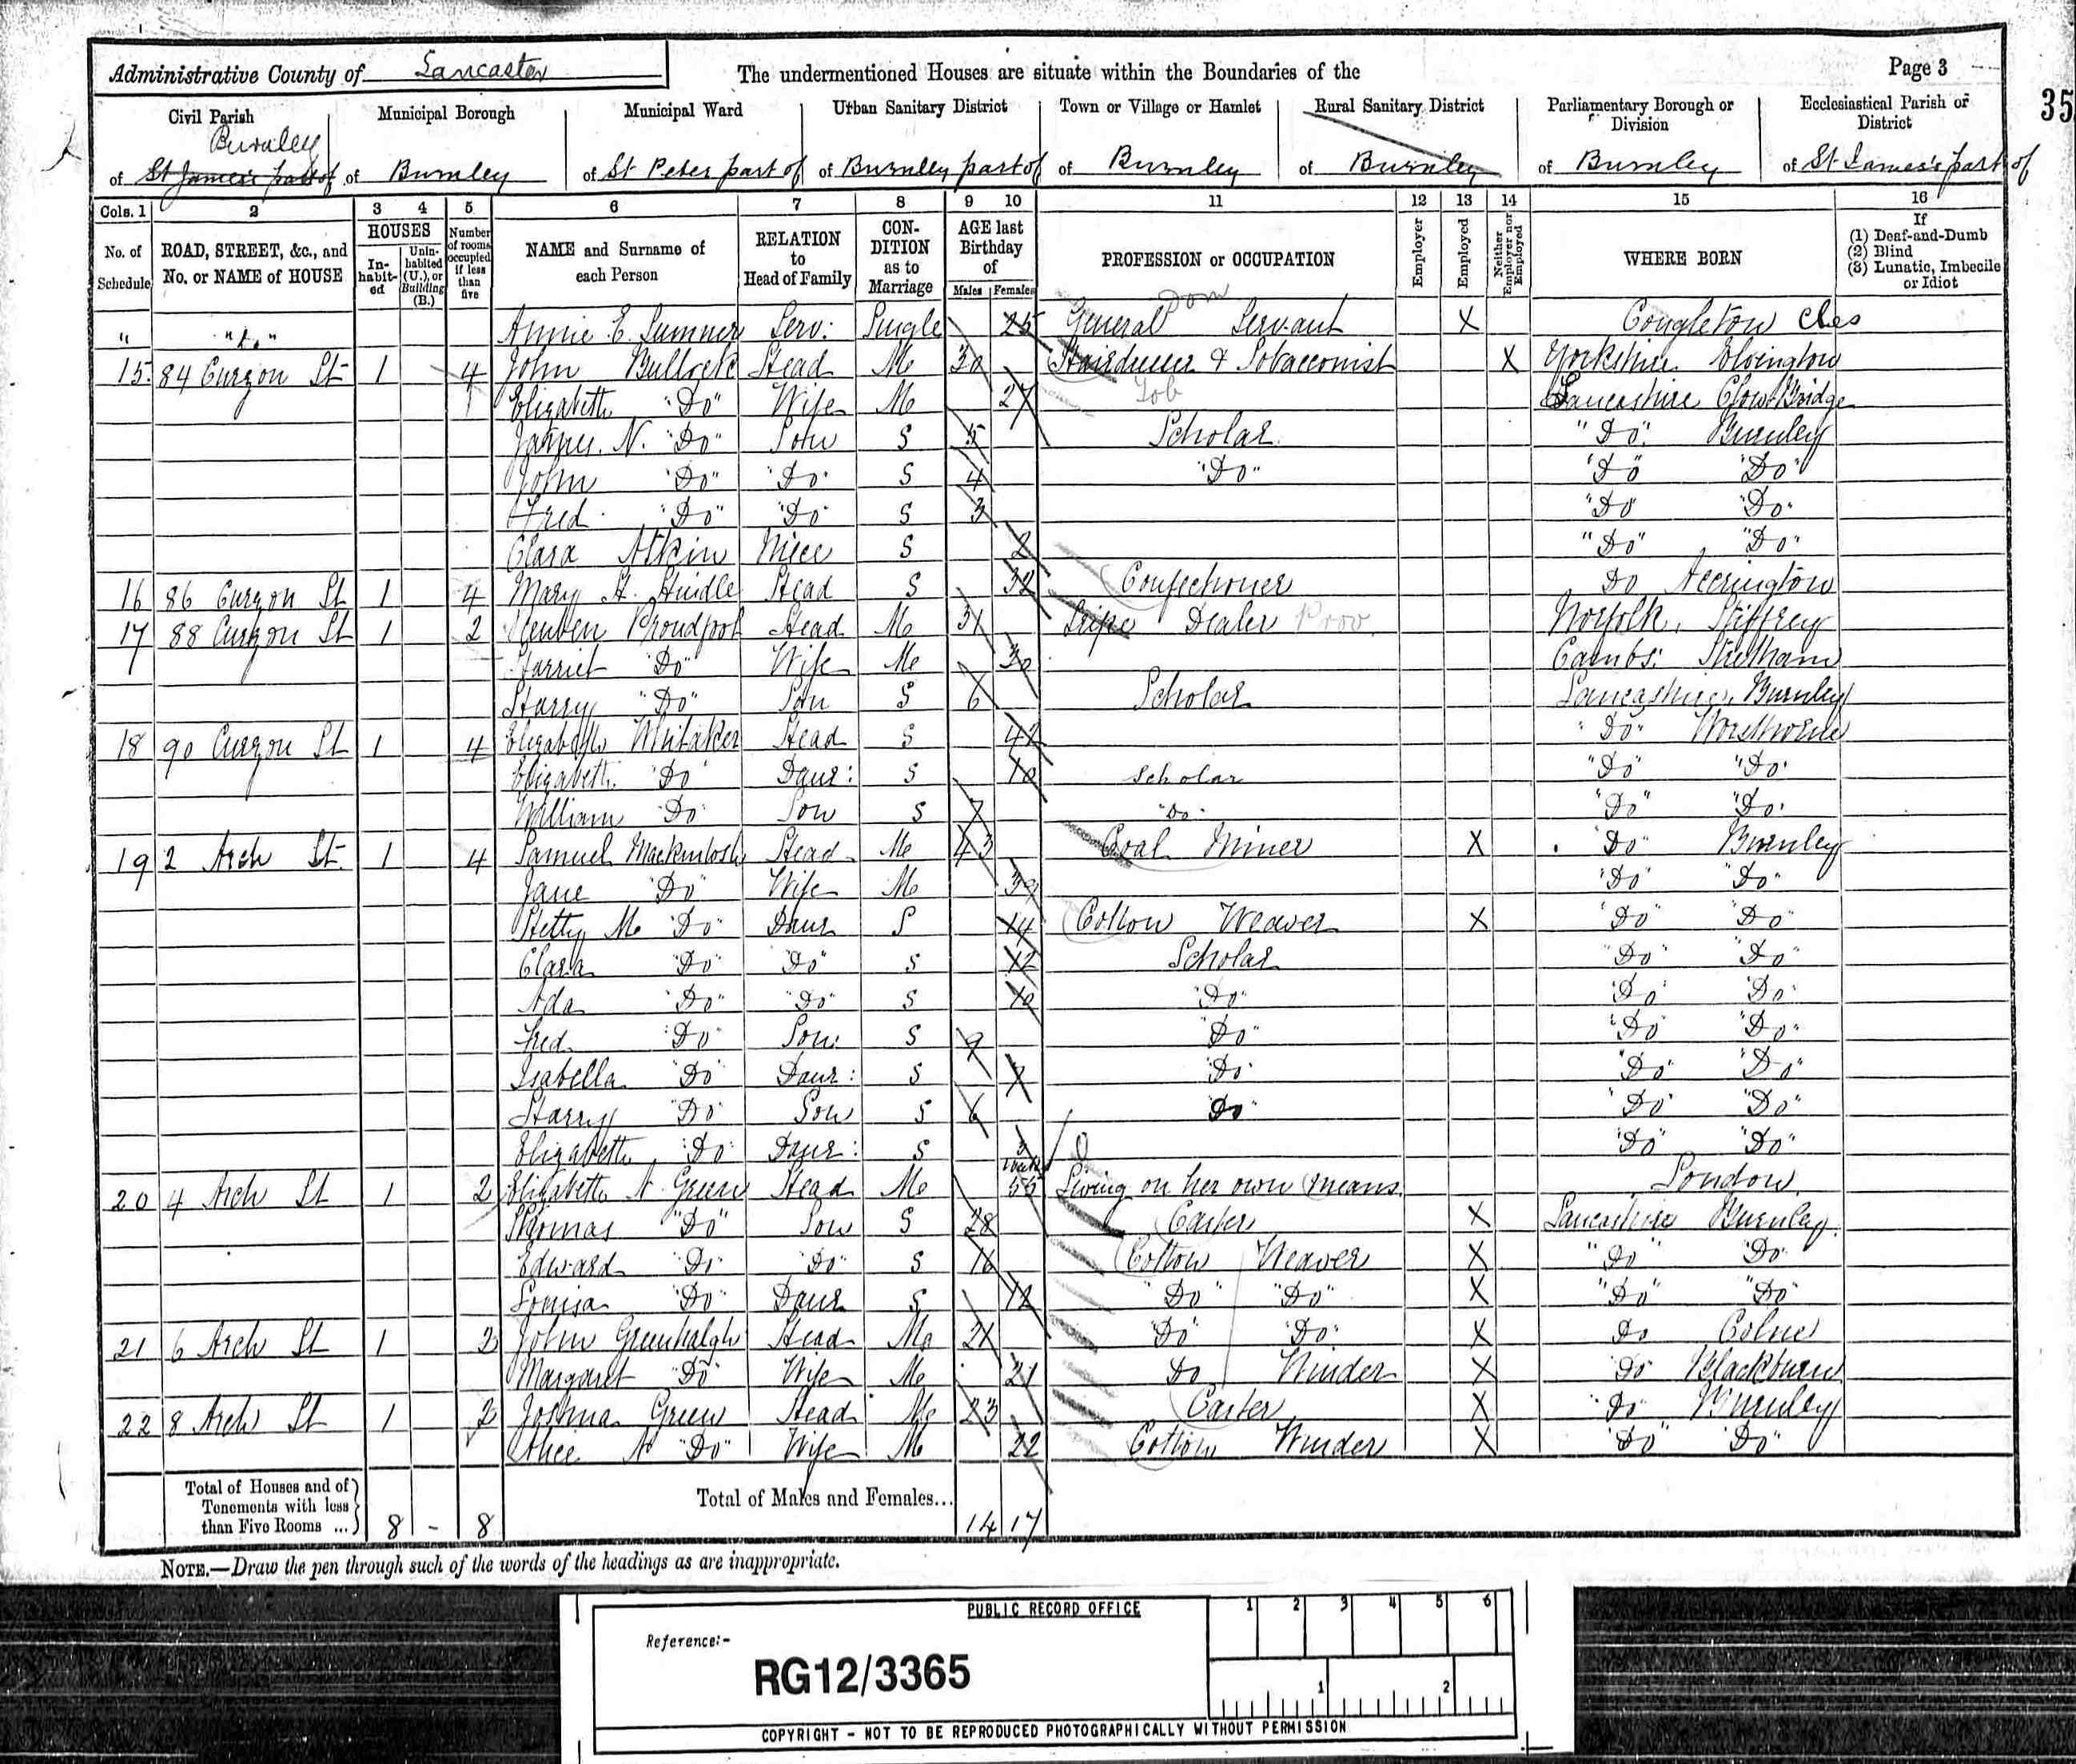 Administrative County of Lancaster
The undermentioned Houses are situate within the Boundaries of the
Page 3
35
Civil Parish
Municipal Borough
Municipal Ward
Urban Sanitary District
Town or Village or Hamlet
Rural Sanitary District
Parliamentary Borough or Division
Ecclesiastical Parish or District
Burnley
of St James's part of
of Burnley
of St Peter part of
of Burnley part of
of Burnley
of Burnley
of Burnley
of St James's part of
Cols. 1 2 3 4 5 6 7 8 9 10 11 12 13 14 15 16
No. of Schedule
ROAD, STREET, &c., and No. or NAME of HOUSE
HOUSES
In-habit-ed
Unin-habited (U.), or Building (B.)
Number of rooms occupied if less than five
NAME and Surname of each Person
RELATION to Head of Family
CON-DITION as to Marriage
AGE last Birthday of
Males
Females
PROFESSION or OCCUPATION
Employer
Employed
Neither Employer nor Employed
WHERE BORN
If
(1) Deaf-and-Dumb
(2) Blind
(3) Lunatic, Imbecile or Idiot
" "Do" Annie E. Sumner Serv: Single 25 General Dom Servant X Congleton Ches
15 84 Curzon St 1 4 John Bullock Head M 30 Hairdresser & Tobacconist X Yorkshire Elvington
Elizabeth "Do" Wife M 27 Tob Lancashire Clow Bridge
James N. "Do" Son S 5 Scholar "Do" Burnley
John "Do" "Do" S 4 "Do" "Do" "Do"
Fred "Do" "Do" S 3 "Do" "Do"
Clara Atkin Niece S 2 "Do" "Do"
16 86 Curzon St 1 4 Mary H. Hindle Head S 32 Confectioner Do Accrington
17 88 Curzon St 1 2 Reuben Proudfoot Head M 31 Tripe Dealer Prov. Norfolk, Stiffkey
Harriet "Do" Wife M 30 Cambs: Stretham
Harry "Do" Son S 6 Scholar Lancashire, Burnley
18 90 Curzon St 1 4 Elizabeth Whitaker Head S 42 "Do" Worsthorne
Elizabeth "Do" Daur: S 10 Scholar "Do" "Do"
William "Do" Son S 7 "Do" "Do" "Do"
19 2 Arch St 1 4 Samuel Mackintosh Head M 43 Coal Miner X "Do" Burnley
Jane "Do" Wife M 39 "Do" "Do"
Hetty M "Do" Daur S 14 Cotton Weaver X "Do" "Do"
Clara "Do" "Do" S 12 Scholar "Do" "Do"
Ada "Do" "Do" S 10 "Do" "Do" "Do"
Fred "Do" Son S 9 "Do" "Do" "Do"
Isabella "Do" Daur: S 7 "Do" "Do" "Do"
Harry "Do" Son S 6 "Do" "Do" "Do"
Elizabeth "Do" Daur: S 3 "Do" "Do"
20 4 Arch St 1 2 Elizabeth A Green Head M 55 Living on her own means London
Thomas "Do" Son S 28 Carter X Lancashire Burnley
Edward "Do" "Do" S 16 Cotton Weaver X "Do" "Do"
Louisa "Do" Daur S 12 "Do" "Do" X "Do" "Do"
21 6 Arch St 1 2 John Greenhalgh Head M 21 "Do" "Do" X Do Colne
Margaret "Do" Wife M 21 Do Winder X Do Blackburn
22 8 Arch St 1 2 Joshua Green Head M 23 Carter X "Do" Burnley
Alice A "Do" Wife M 22 Cotton Winder X "Do" "Do"
Total of Houses and of Tenements with less than Five Rooms ... 8 - 8
Total of Males and Females... 14 17
NOTE.—Draw the pen through such of the words of the headings as are inappropriate.
PUBLIC RECORD OFFICE
1 2 3 4 5 6
Reference:-
RG12/3365
1 2
COPYRIGHT - NOT TO BE REPRODUCED PHOTOGRAPHICALLY WITHOUT PERMISSION